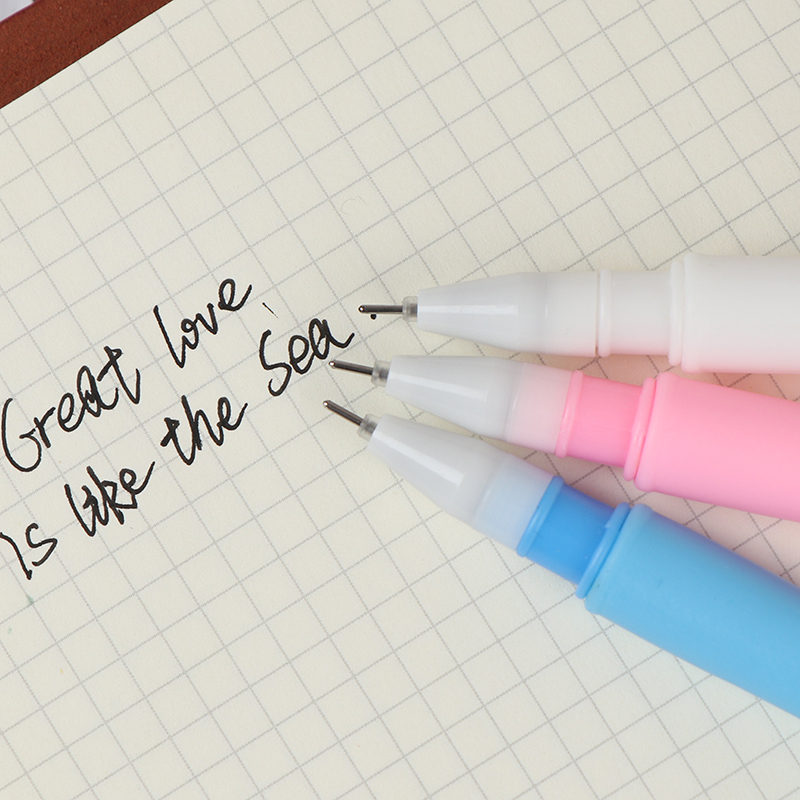 Great love,
Is like the Sea.